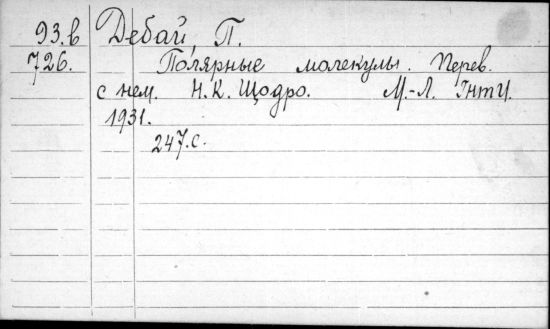 93.в Дебай П.
726. Полярные молекулы. Перев.
с нем. Н.К. Щодро. М.-Л. ГНТИ.
1931.
247.с.